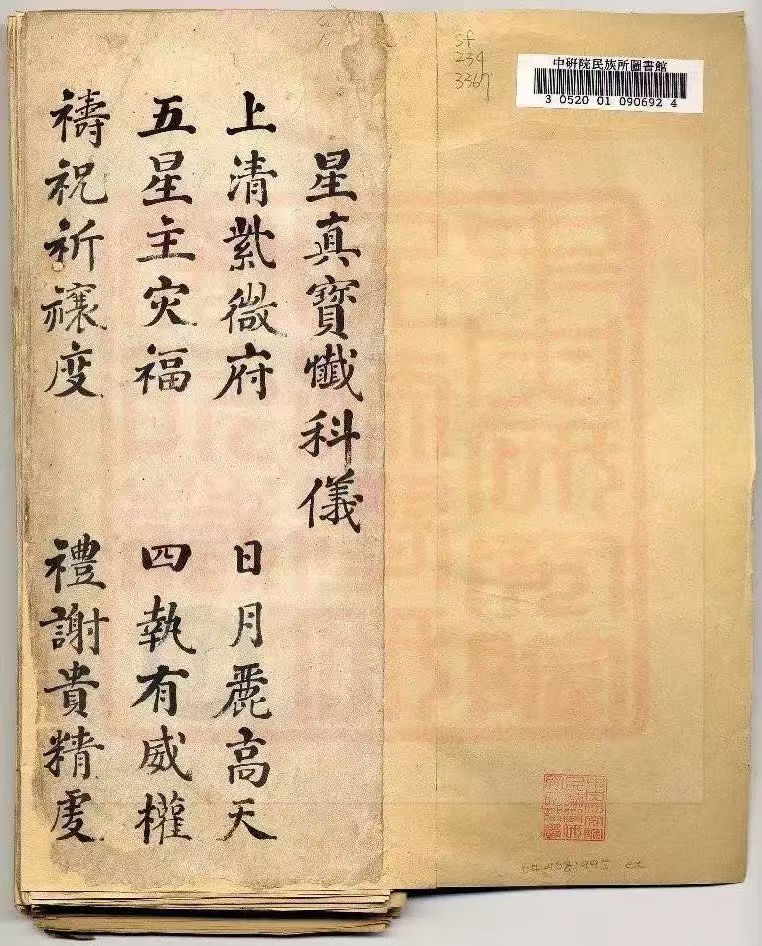 sf
234
3367
中硏院民族所圖書館
3 0520 01 090692 4
星真寶懺科儀
上清紫微府 日月麗高天
五星主灾福 四執有威權
禱祝祈禳度 禮謝貴精虔